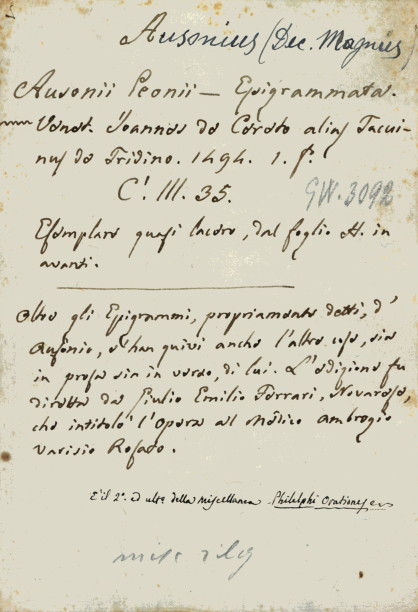 Ausonius (Dec. Magnus)
Ausonii Peonii — Epigrammata.
Venet. Joannes de Cereto alias Tacui-
nus de Tridino. 1494. 1. f.
C. III. 35.
GW. 3092
Esemplare quasi lacero, dal foglio H. in
avanti.
Oltre gli Epigrammi, propriamente detti, d'
Ausonio, s'han quivi anche l'altre cose, sia
in prosa sia in verso, di lui. L'edizione fu
diretta da Giulio Emilio Ferrari, Novarese,
che intitolò l'Opera al Medico Ambrogio
Varisio Rosato.
È il 2°. ed ult°. della miscellanea Philelphi Orationes
misc rileg